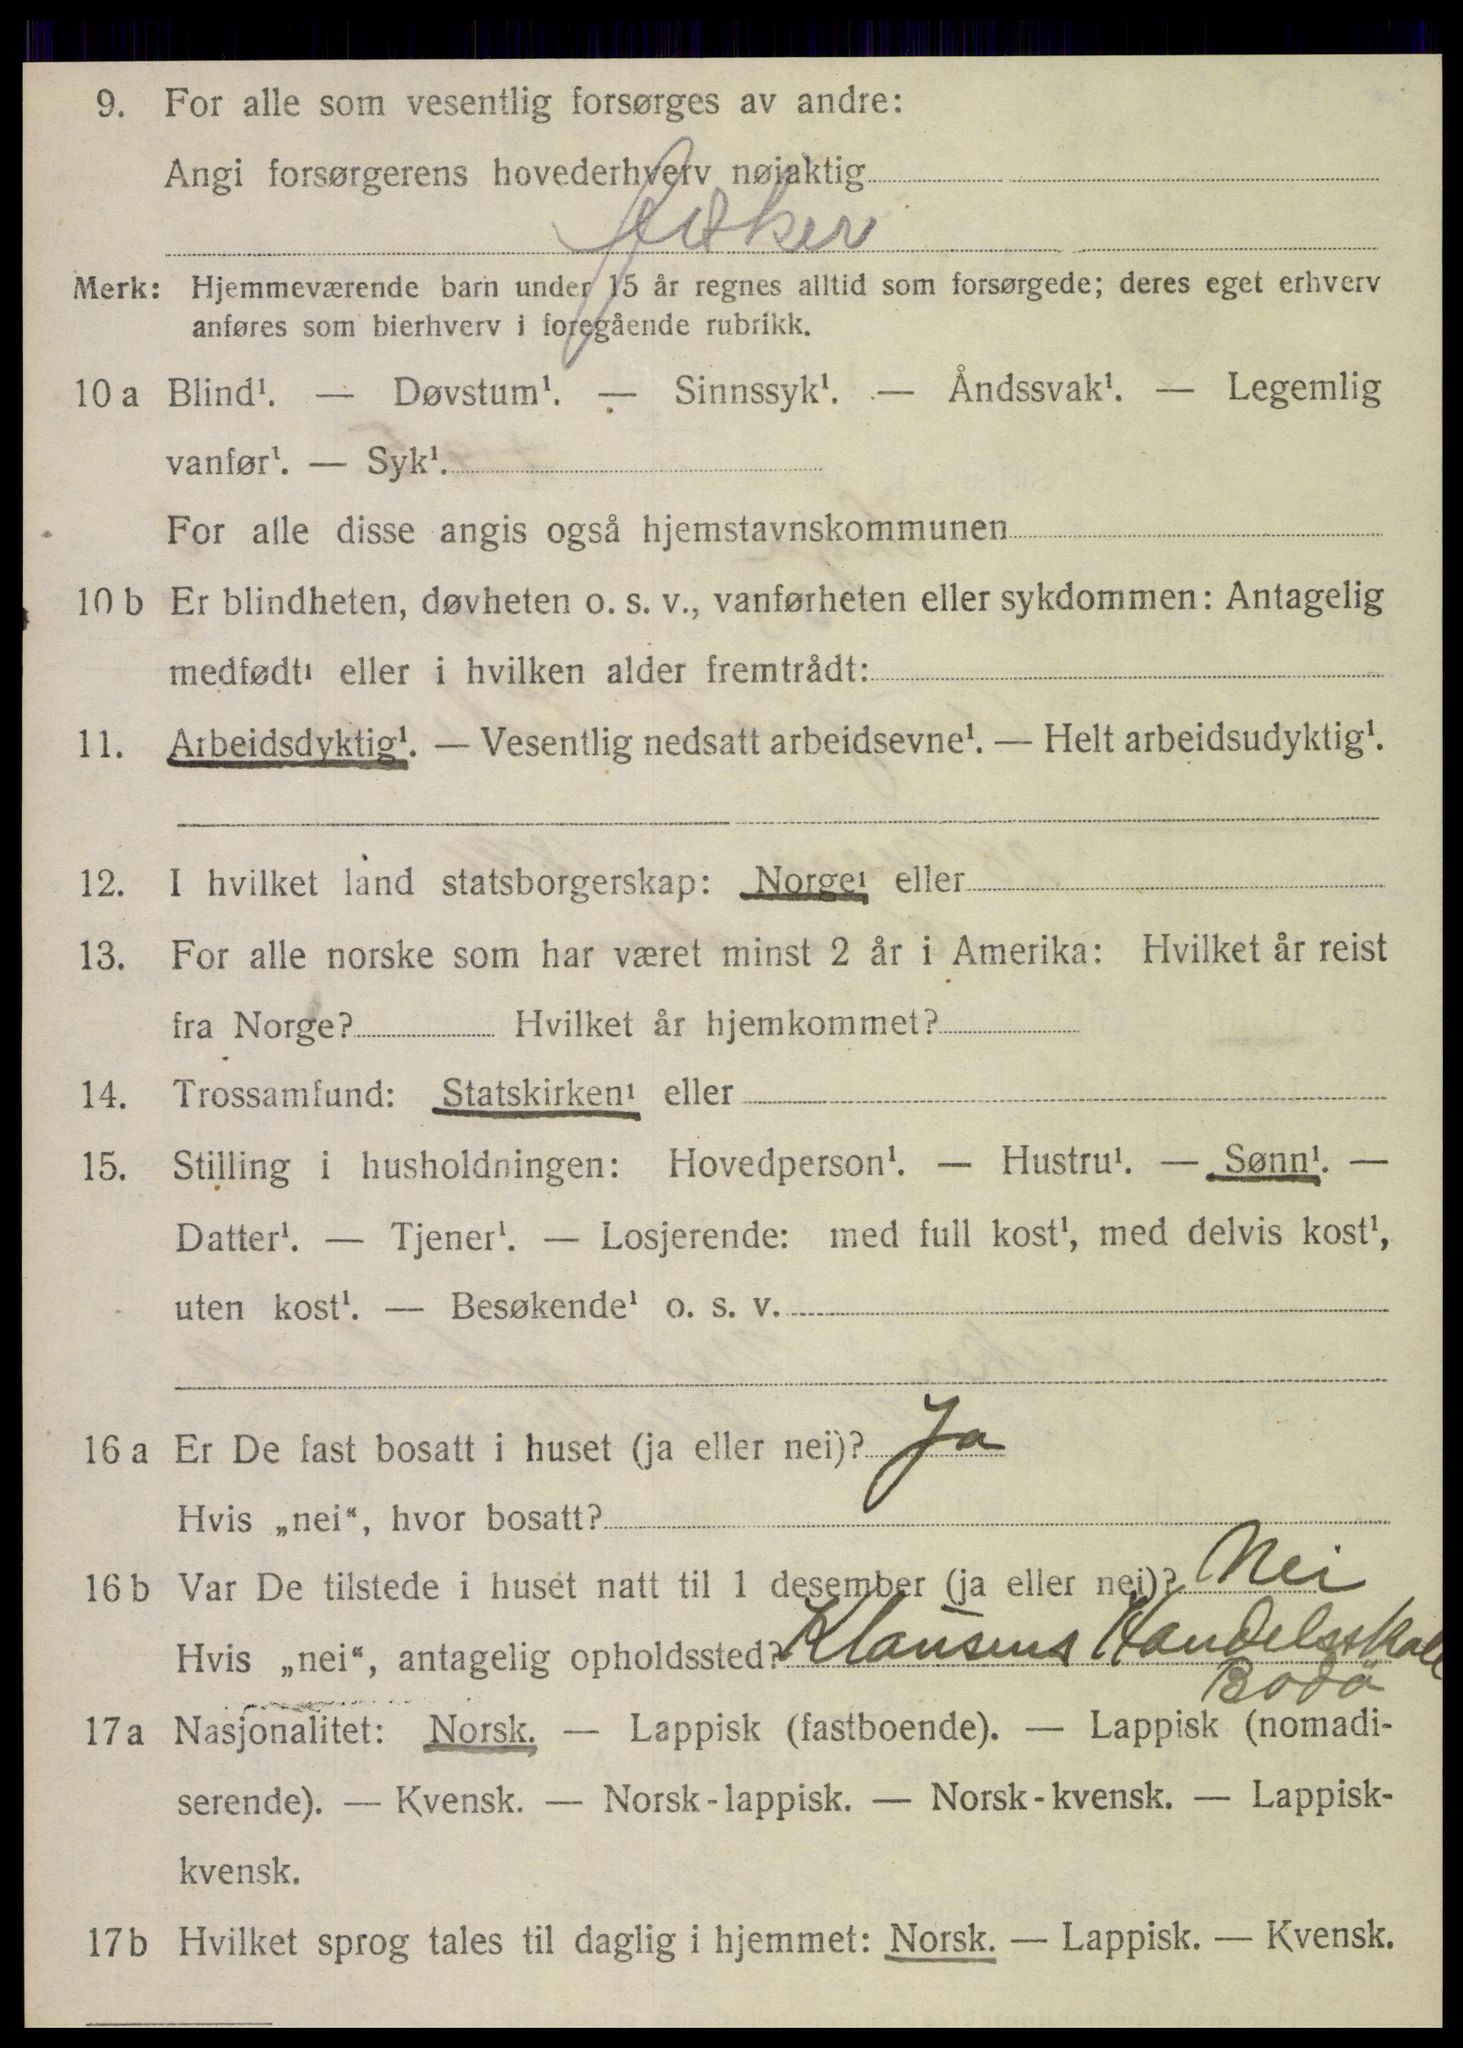 9. For alle som vesentlig forsørges av andre:
Angi forsørgerens hovederhverv nøiaktig
Fisker
Merk: Hjemmeværende barn under 15 år regnes alltid som forsørgede; deres eget erhverv
anføres som bierhverv i foregående rubrikk.
10 a Blind¹. — Døvstum¹. — Sinnssyk¹. — Åndssvak¹. — Legemlig
vanfør¹. — Syk¹.
For alle disse angis også hjemstavnskommunen
10 b Er blindheten, døvheten o. s. v., vanførheten eller sykdommen: Antagelig
medfødt¹ eller i hvilken alder fremtrådt:
11. Arbeidsdyktig¹. — Vesentlig nedsatt arbeidsevne¹. — Helt arbeidsudyktig¹.
12. I hvilket land statsborgerskap: Norge¹ eller
13. For alle norske som har været minst 2 år i Amerika: Hvilket år reist
fra Norge? Hvilket år hjemkommet?
14. Trossamfund: Statskirken¹ eller
15. Stilling i husholdningen: Hovedperson¹. — Hustru¹. — Sønn¹. —
Datter¹. — Tjener¹. — Losjerende: med full kost¹, med delvis kost¹,
uten kost¹. — Besøkende¹ o. s. v.
16 a Er De fast bosatt i huset (ja eller nei)? Ja
Hvis „nei“, hvor bosatt?
16 b Var De tilstede i huset natt til 1 desember (ja eller nei)? Nei
Hvis „nei“, antagelig opholdssted? Klausens Handelsskole
Bodö
17 a Nasjonalitet: Norsk. — Lappisk (fastboende). — Lappisk (nomadi-
serende). — Kvensk. — Norsk-lappisk. — Norsk-kvensk. — Lappisk-
kvensk.
17 b Hvilket sprog tales til daglig i hjemmet: Norsk. — Lappisk. — Kvensk.